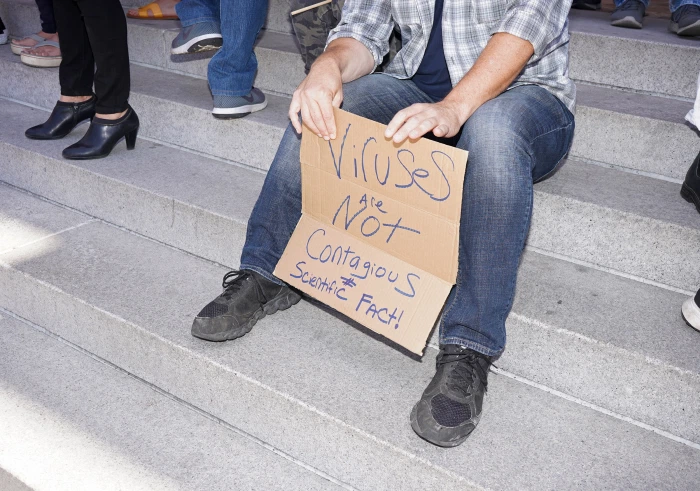 Viruses
Are
Not
Contagious
#
Scientific Fact!